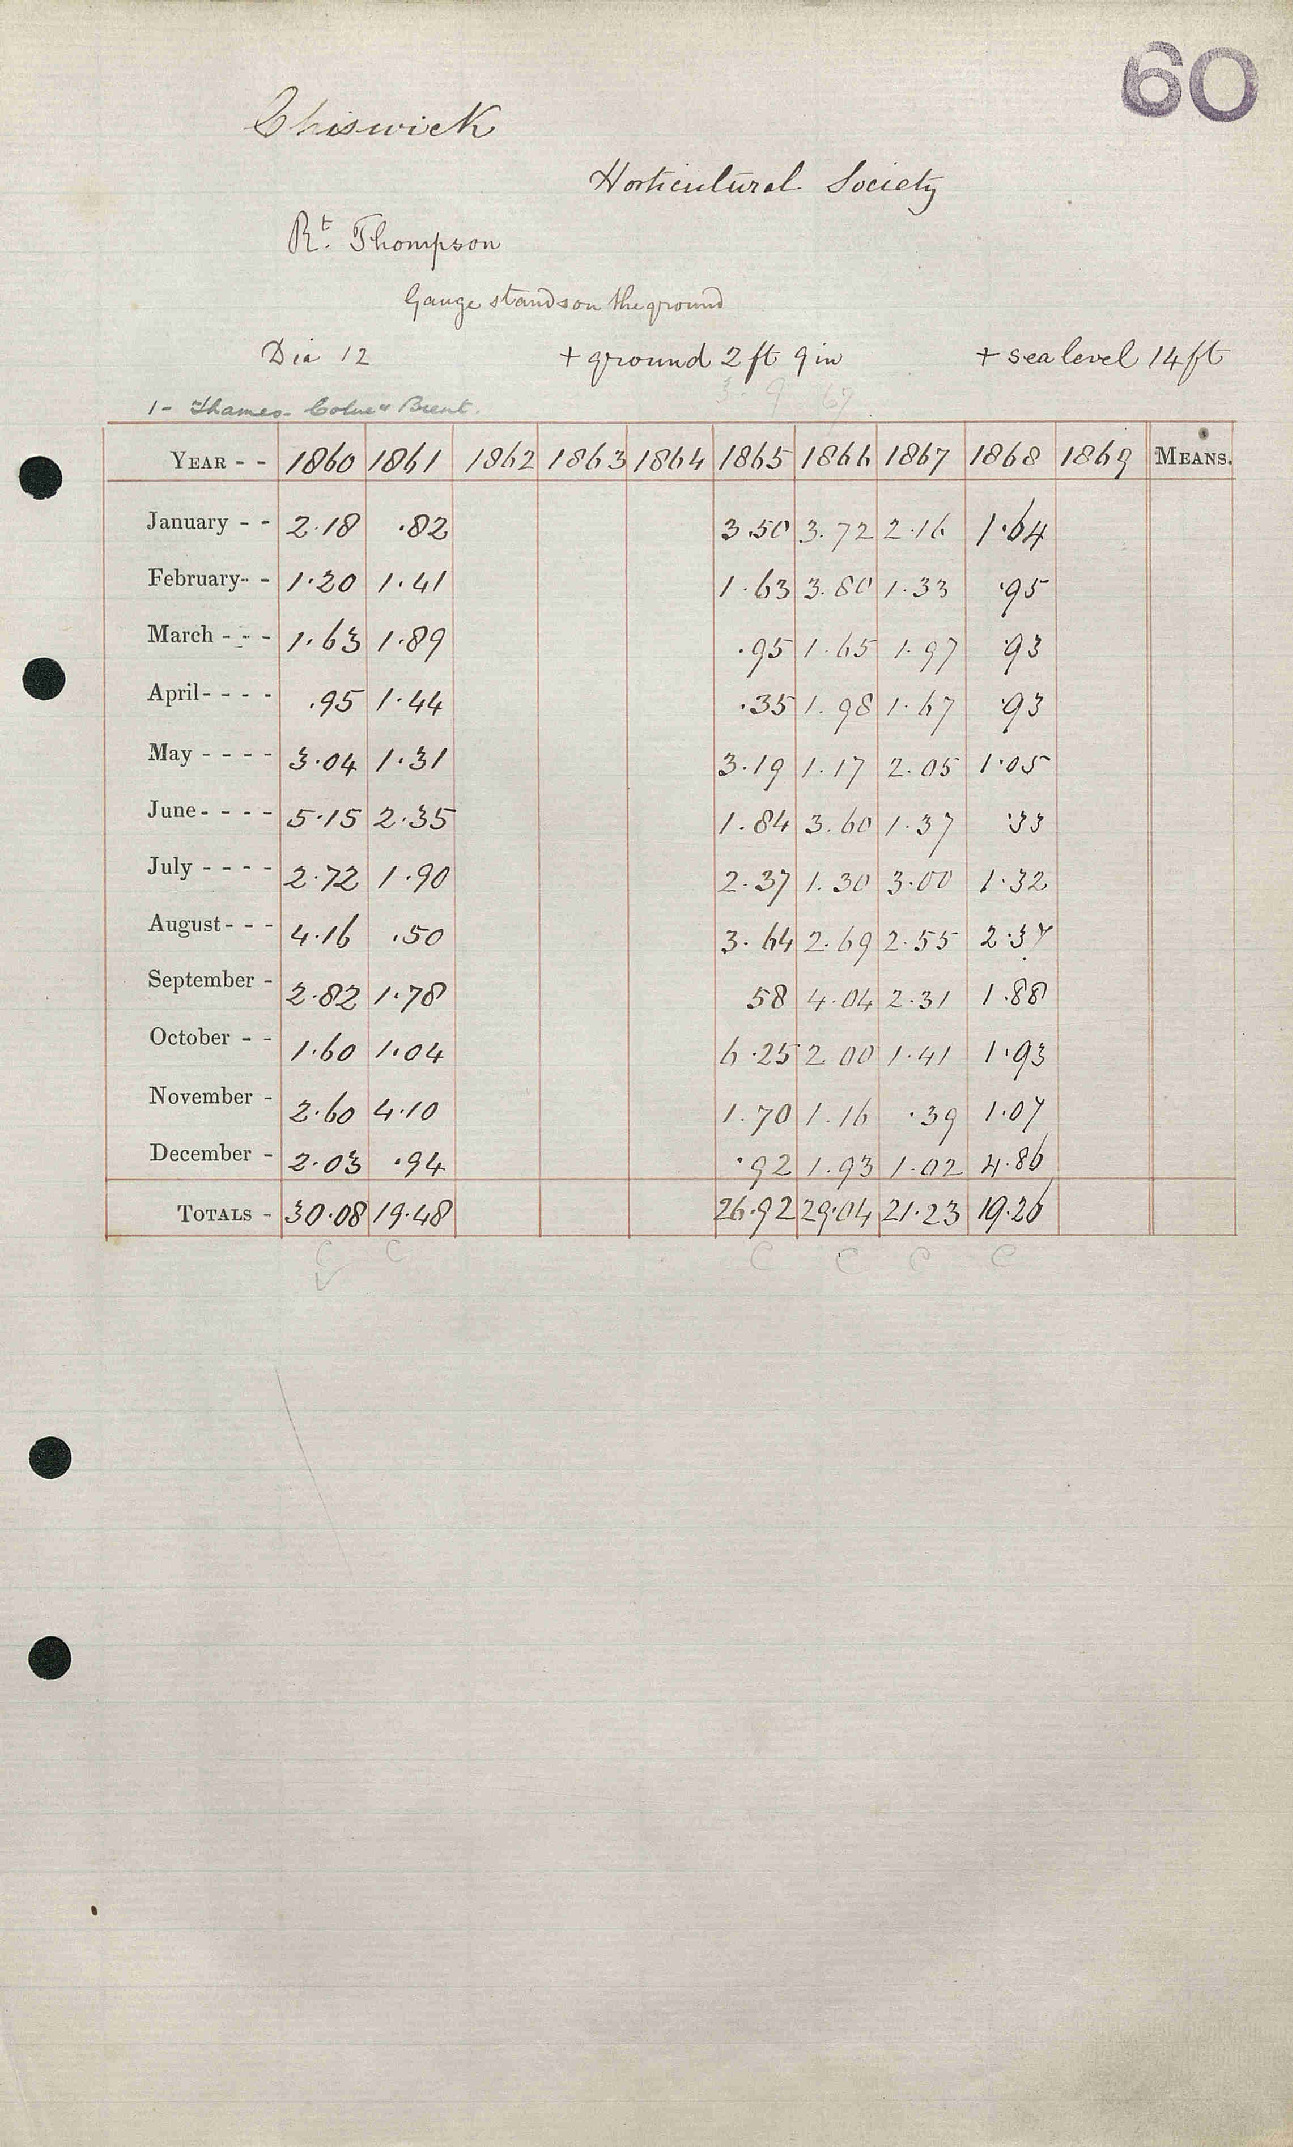 60
Chiswick
Horticultural Society
Rt. Thompson
Gauge stands on the ground
Dia 12 + ground 2 ft 9 in + sea level 14 ft
3 9 67
1 - Thames - Colne & Brent.
YEAR - - 1860 1861 1862 1863 1864 1865 1866 1867 1868 1869 MEANS.
January - - 2.18 .82 3.50 3.72 2.16 1.64
February - - 1.20 1.41 1.63 3.80 1.33 .95
March - - - 1.63 1.89 .95 1.65 1.97 .93
April - - - - .95 1.44 .35 1.98 1.67 .93
May - - - - 3.04 1.31 3.19 1.17 2.05 1.05
June - - - - 5.15 2.35 1.84 3.60 1.37 .33
July - - - - 2.72 1.90 2.37 1.30 3.00 1.32
August - - - 4.16 .50 3.64 2.69 2.55 2.37
September - 2.82 1.78 58 4.04 2.31 1.88
October - - 1.60 1.04 6.25 2 00 1.41 1.93
November - 2.60 4.10 1.70 1.16 .39 1.07
December - 2.03 .94 .92 1.93 1.02 4.86
TOTALS - 30.08 19.48 26.92 29.04 21.23 19.26
C C C C C C